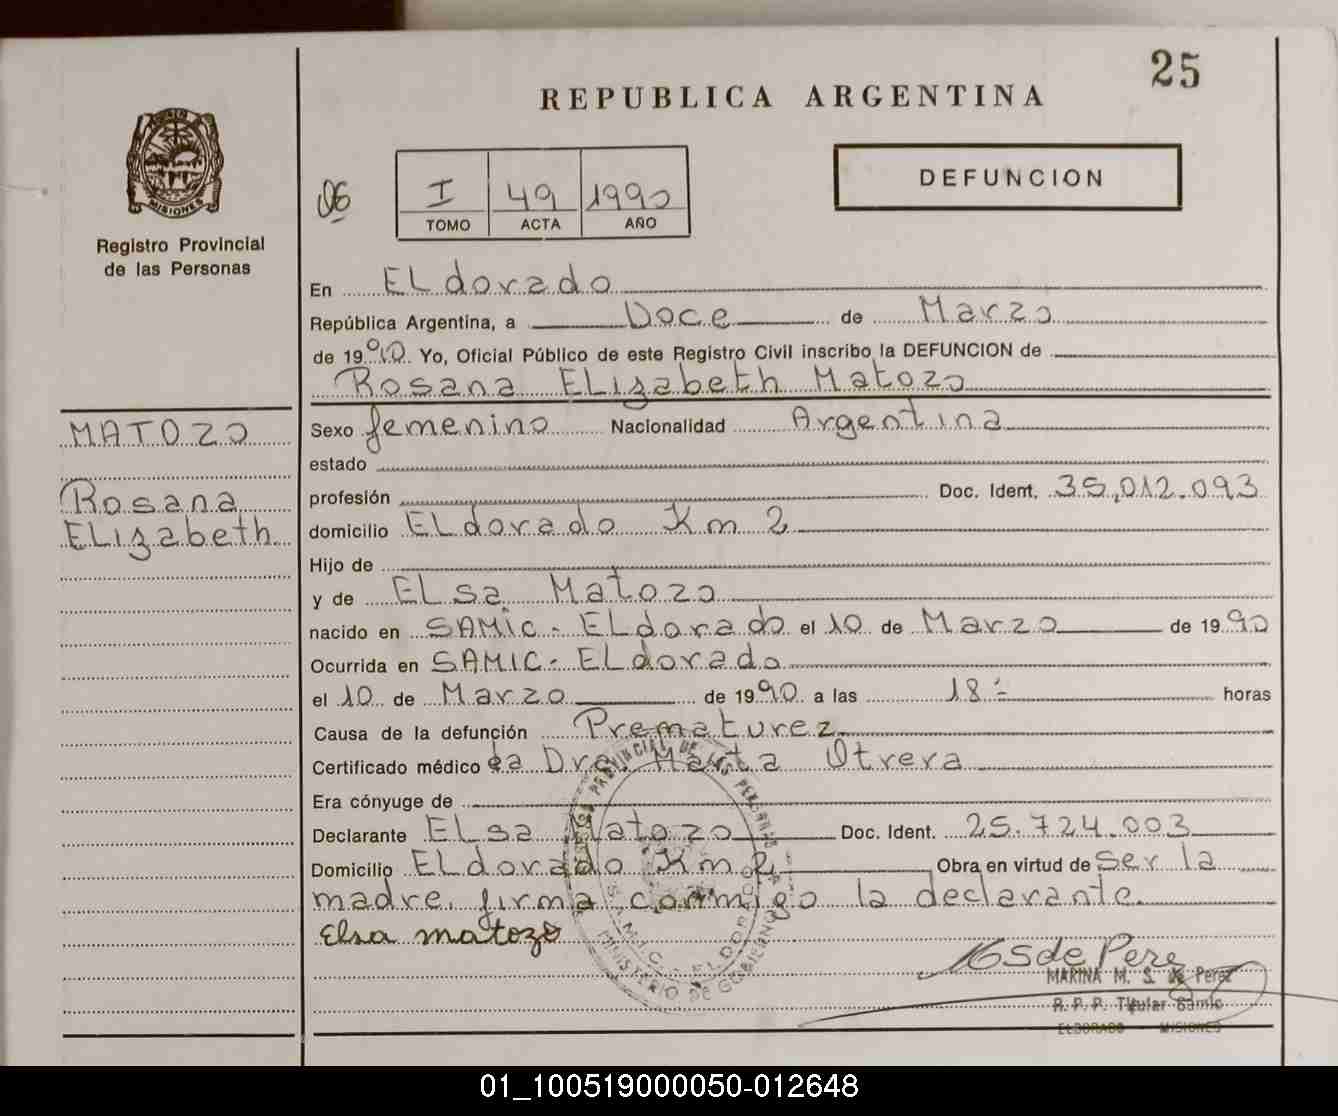 25
REPUBLICA ARGENTINA
MISIONES
Registro Provincial
de las Personas
06
I 49 1990
TOMO ACTA AÑO
DEFUNCION
En ELdorado
República Argentina, a Doce de Marzo
de 1990. Yo, Oficial Público de este Registro Civil inscribo la DEFUNCION de
Rosana ELizabeth Matozo
MATOZO
Rosana
ELizabeth
Sexo femenino Nacionalidad Argentina
estado
profesión Doc. Ident. 35.012.093
domicilio ELdorado Km 2
Hijo de
y de ELsa Matozo
nacido en SAMic - ELdorado el 10 de Marzo de 1990
Ocurrida en SAMIC - ELdorado
el 10 de Marzo de 1990 a las 18 - horas
Causa de la defunción Prematurez
Certificado médico la Dra. Marta Otrera
Era cónyuge de
Declarante ELsa Matozo Doc. Ident. 25.724.003
Domicilio ELdorado Km 2 Obra en virtud de ser la
madre. firma conmigo la declarante.
Elsa matozo
PROVINCIAL DE LAS PERSONAS
S.A.M.I.C. - ELDORADO
MINISTERIO DE GOBIERNO
MSde Perez
MARINA M. S. de Perez
R. P. P. Titular Samic
ELDORADO - MISIONES
01_100519000050-012648